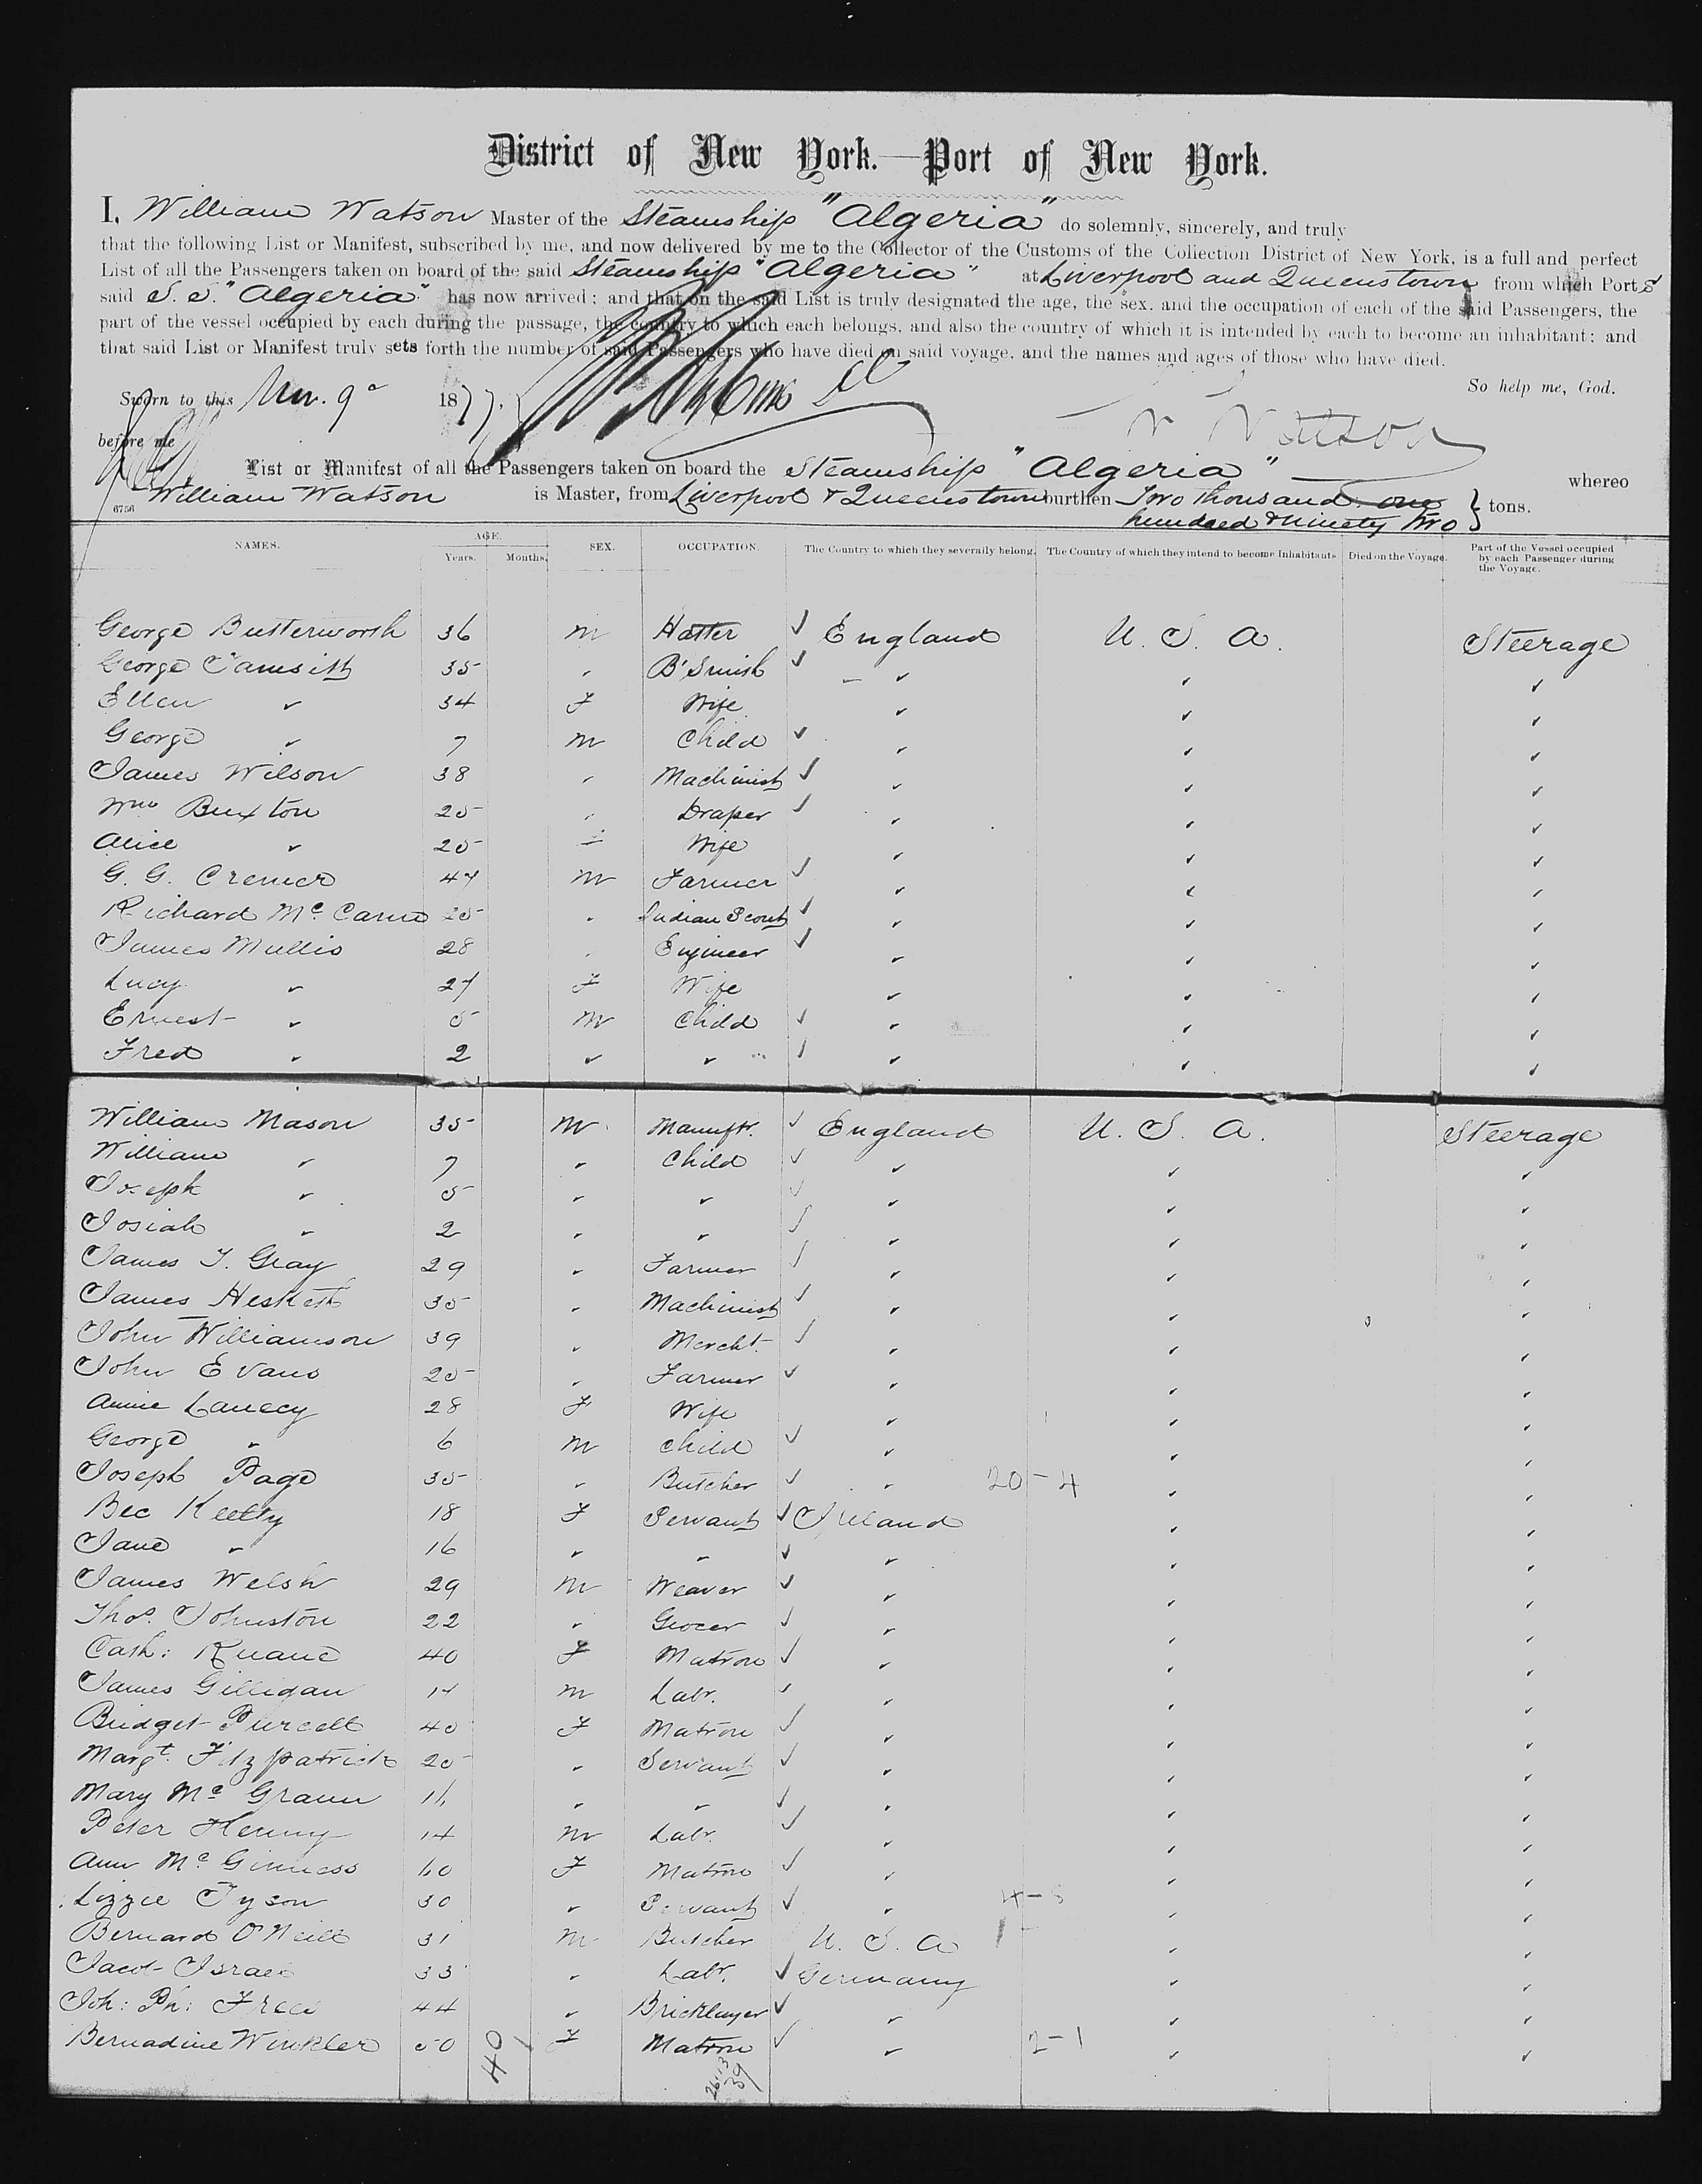 District of New York.—Port of New York.
I, William Watson Master of the Steamship "Algeria" do solemnly, sincerely, and truly
that the following List or Manifest, subscribed by me, and now delivered by me to the Collector of the Customs of the Collection District of New York, is a full and perfect
List of all the Passengers taken on board of the said Steamship "Algeria" at Liverpool and Queenstown from which Ports
said S. S. "Algeria" has now arrived; and that on the said List is truly designated the age, the sex, and the occupation of each of the said Passengers, the
part of the vessel occupied by each during the passage, the country to which each belongs, and also the country of which it is intended by each to become an inhabitant; and
that said List or Manifest truly sets forth the number of said Passengers who have died on said voyage, and the names and ages of those who have died.
So help me, God.
Sworn to this 9 1877,
W Watson
before me
List or Manifest of all the Passengers taken on board the Steamship "Algeria" whereo
William Watson is Master, from Liverpool & Queenstown burthen Two thousand one
hundred & ninety two } tons.
6756
NAMES. AGE. Years. Months. SEX. OCCUPATION. The Country to which they severally belong. The Country of which they intend to become Inhabitants Died on the Voyage. Part of the Vessel occupied by each Passenger during the Voyage.
George Butterworth 36 M Hatter ✓ England U. S. A. Steerage
George 35 " B'Smith ✓ " " "
Ellen " 34 F Wife " " "
George " 7 M Child ✓ " " "
James Wilson 38 " Machinist ✓ " " "
Wm Buxton 25 " Draper ✓ " " "
Alice " 25 F Wife " " "
G. G. Cremer 47 M Farmer ✓ " " "
Richard Mc 25 " Indian Scout ✓ " " "
James Mullis 28 " Engineer ✓ " " "
Lucy " 27 F Wife " " "
Ernest " 5 M Child ✓ " " "
Fred " 2 " " ✓ " " "
William Mason 35 M Manufr. ✓ England U. S. A. Steerage
William " 7 " Child ✓ " " "
Joseph " 5 " " ✓ " " "
Josiah " 2 " " ✓ " " "
James T. Gray 29 " Farmer ✓ " " "
James Hesketh 35 " Machinist ✓ " " "
John Williamson 39 " Mercht. ✓ " " "
John Evans 25 " Farmer ✓ " " "
Annie 28 F Wife " " "
George " 6 M Child ✓ " " "
Joseph Page 35 " Butcher ✓ " 20-4 " "
Bec Kielty 18 F Servant ✓ Ireland " "
Jane " 16 " " ✓ " " "
James Welsh 29 M Weaver ✓ " " "
Thos. Johnston 22 " Grocer ✓ " " "
Cath: Ruane 40 F Matron ✓ " " "
James Gilligan 14 M Labr. ✓ " " "
Bridget Purcell 40 F Matron ✓ " " "
Margt. Fitzpatrick 25 " Servant ✓ " " "
Mary Mc Grann 16 " " ✓ " " "
Peter 14 M Labr. ✓ " " "
Ann Mc Ginness 60 F Matron ✓ " " "
Lizzie Tyson 30 " Servant ✓ " " "
Bernard O'Neill 31 M Butcher U. S. A " "
Jacob Israel 33 " Labr. ✓ Germany " "
Joh: Ph: Frees 44 " Bricklayer ✓ " " "
Bernadine Winkler 50 F Matron ✓ " 2-1 " "
40
26.13
39